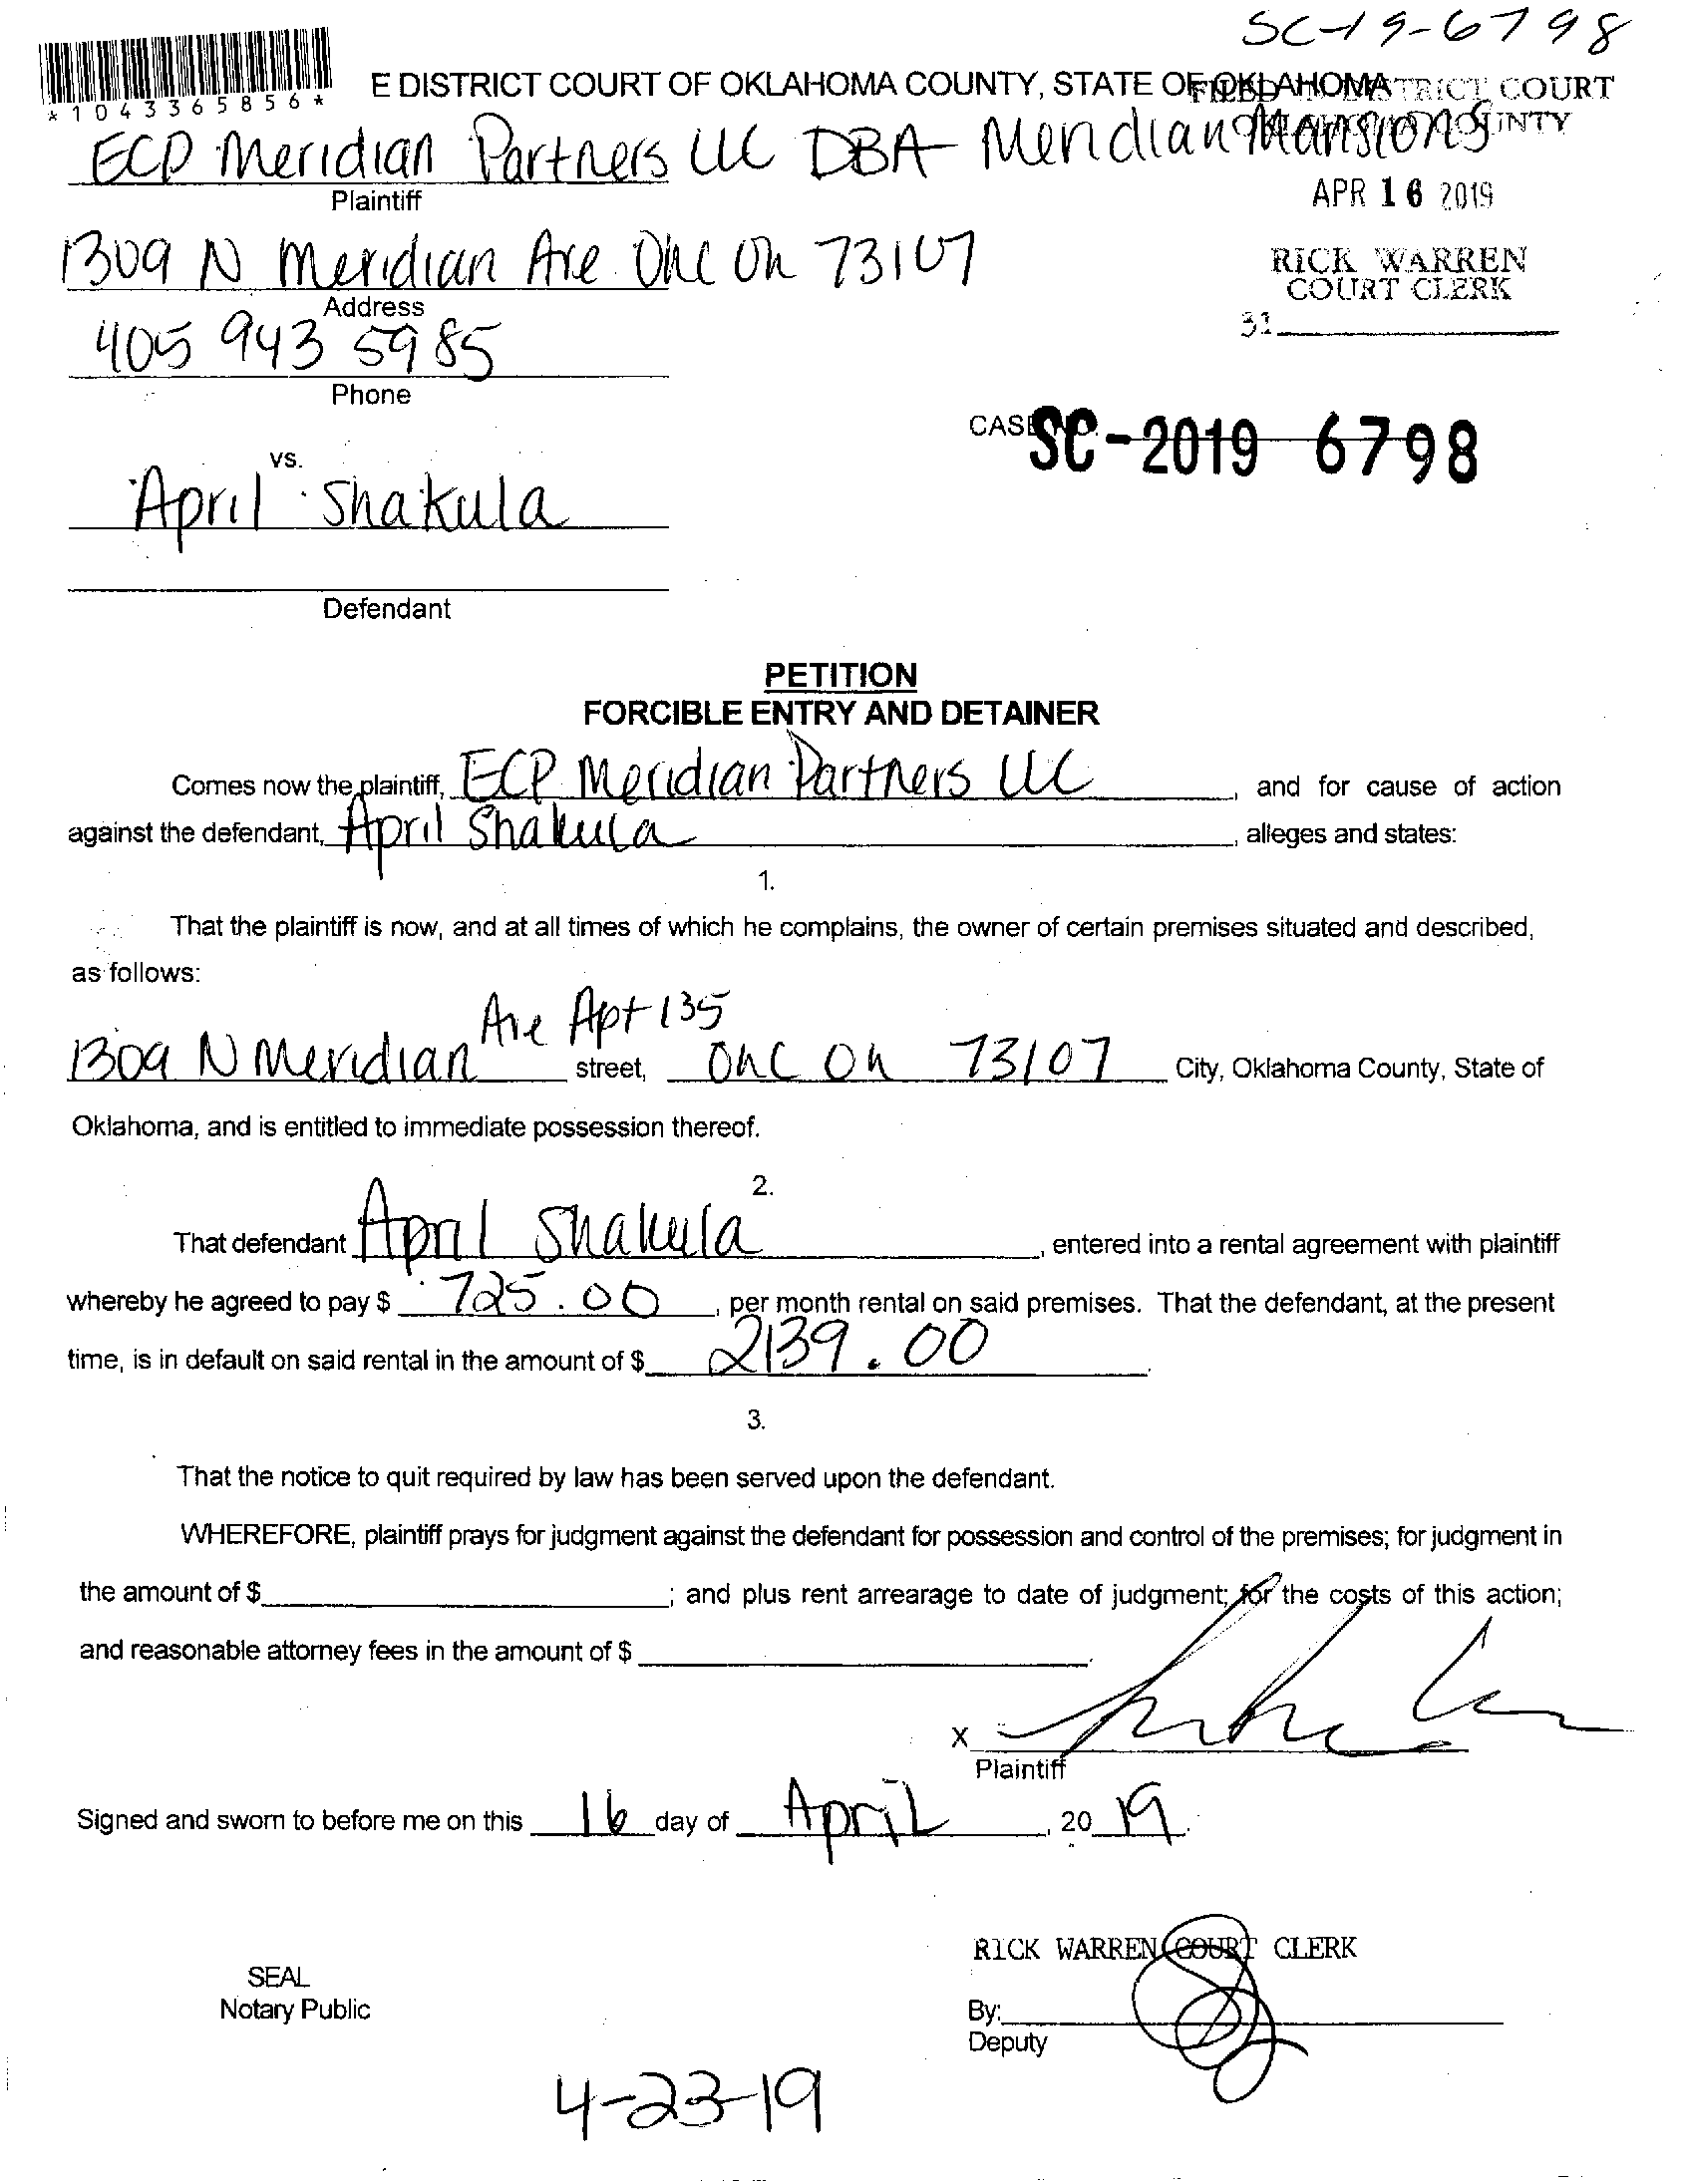 SC-19-6798
*1043365856*
E DISTRICT COURT OF OKLAHOMA COUNTY, STATE OF OKLAHOMA
FILED IN DISTRICT COURT
OKLAHOMA COUNTY
ECP Meridian Partners LLC DBA Meridian Mansions
Plaintiff
APR 16 2019
1309 N Meridian Ave OKC OK 73107
Address
RICK WARREN
COURT CLERK
31
405 943 5985
Phone
CASE NO.
SC-2019 6798
vs.
April Shakula
Defendant
PETITION
FORCIBLE ENTRY AND DETAINER
Comes now the plaintiff, ECP Meridian Partners LLC, and for cause of action
against the defendant, April Shakula, alleges and states:
1.
That the plaintiff is now, and at all times of which he complains, the owner of certain premises situated and described,
as follows:
1309 N Meridian Ave Apt 135 street, OKC OK 73107 City, Oklahoma County, State of
Oklahoma, and is entitled to immediate possession thereof.
2.
That defendant April Shakula, entered into a rental agreement with plaintiff
whereby he agreed to pay $ 725.00, per month rental on said premises. That the defendant, at the present
time, is in default on said rental in the amount of $ 2139.00.
3.
That the notice to quit required by law has been served upon the defendant.
WHEREFORE, plaintiff prays for judgment against the defendant for possession and control of the premises; for judgment in
the amount of $ ; and plus rent arrearage to date of judgment; for the costs of this action;
and reasonable attorney fees in the amount of $ .
X
Plaintiff
Signed and sworn to before me on this 16 day of April, 20 19.
RICK WARREN COURT CLERK
SEAL
Notary Public
By:
Deputy
4-23-19